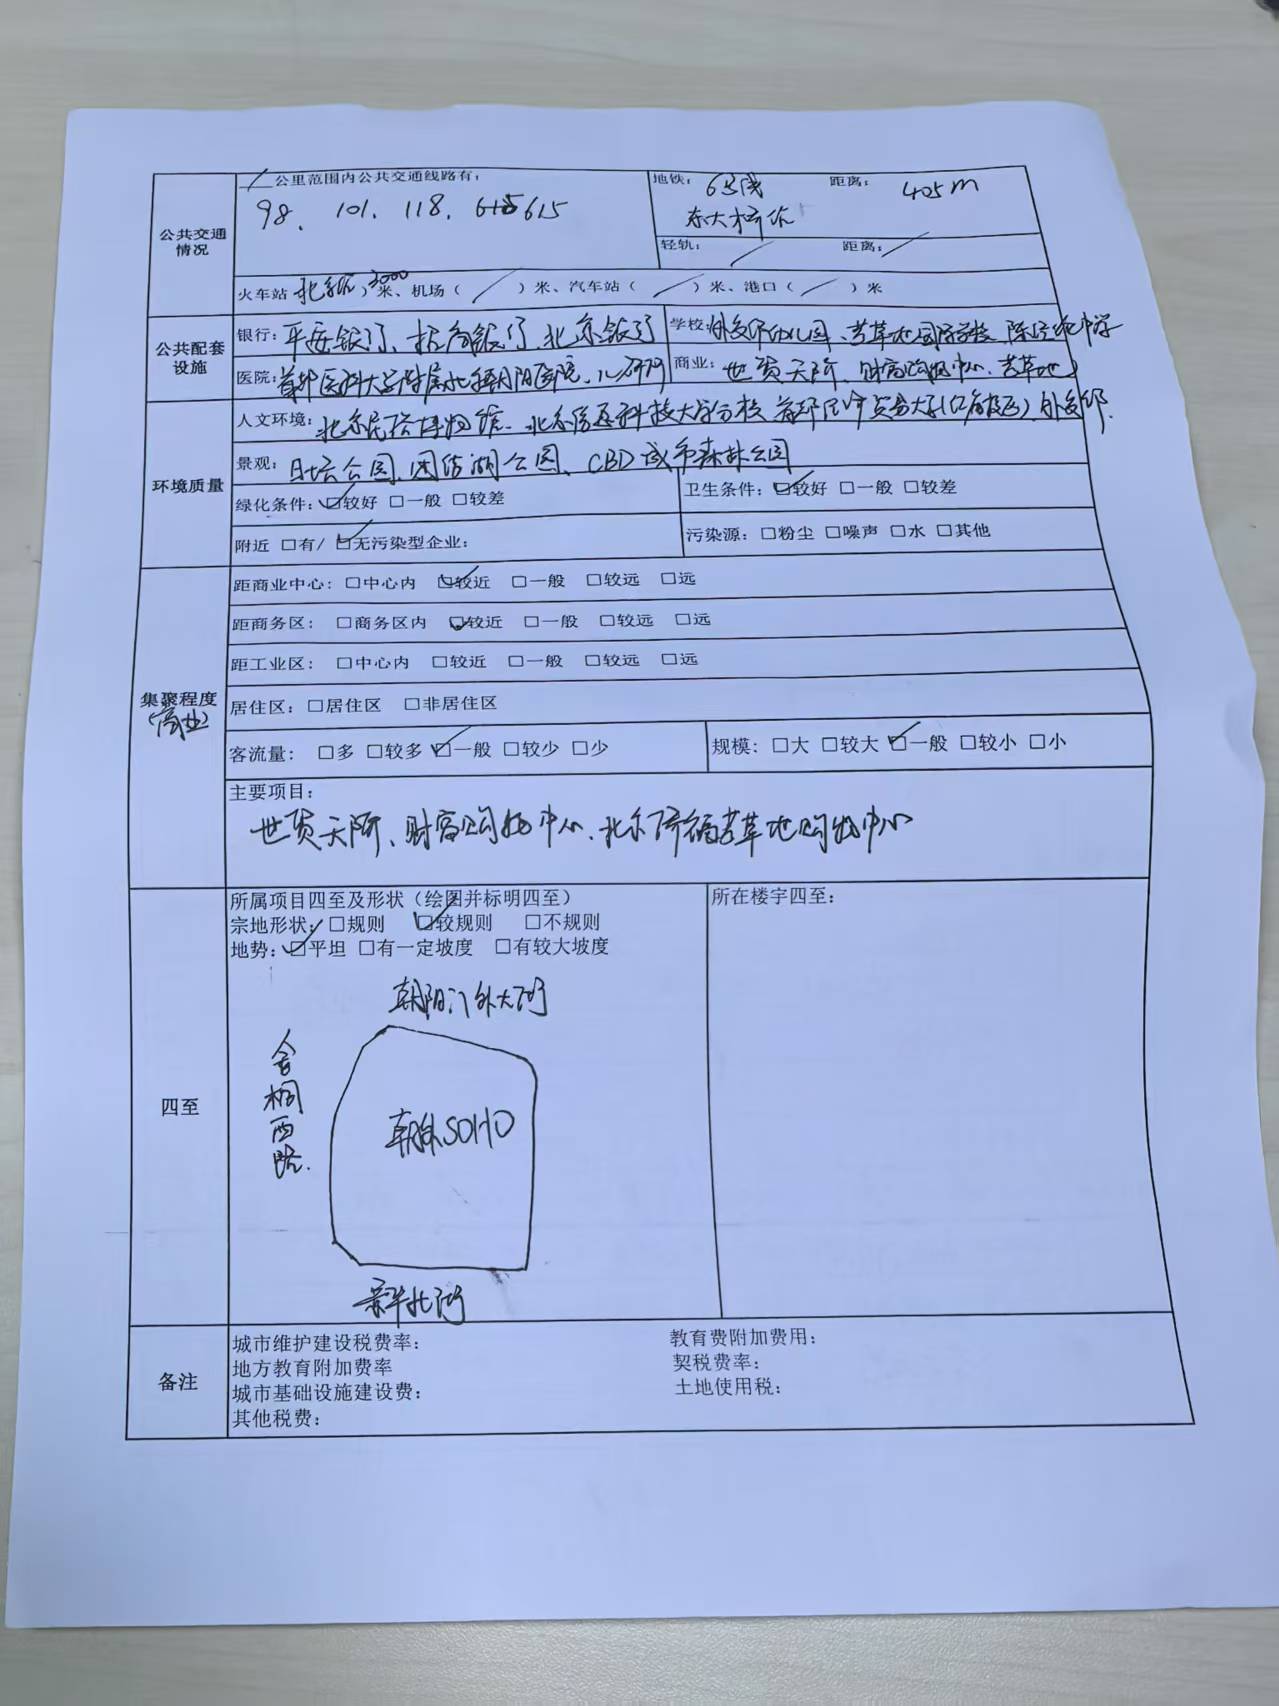 公共交通情况
公里范围内公共交通线路有：
98、101、118、615
地铁：6号线 距离：405m
东大桥站
轻轨：/ 距离：/
火车站（北京站）3000米、机场（/）米、汽车站（/）米、港口（/）米
公共配套设施
银行：平安银行、招商银行、北京银行
学校：外交部幼儿园、芳草地国际学校、陈经纶中学
医院：首都医科大学附属北京朝阳医院、
商业：世贸天阶、财富购物中心、芳草地
环境质量
人文环境：北京民俗博物馆、北京信息科技大学分校 首都经济贸易大学(红庙校区) 外交部
景观：日坛公园、团结湖公园、CBD城市森林公园
绿化条件：☑较好 □一般 □较差
卫生条件：☑较好 □一般 □较差
附近 □有/ ☑无污染型企业：
污染源：□粉尘 □噪声 □水 □其他
集聚程度
(商业)
距商业中心：□中心内 ☑较近 □一般 □较远 □远
距商务区： □商务区内 ☑较近 □一般 □较远 □远
距工业区： □中心内 □较近 □一般 □较远 □远
居住区：□居住区 □非居住区
客流量： □多 □较多 ☑一般 □较少 □少
规模：□大 □较大 ☑一般 □较小 □小
主要项目：
世贸天阶、财富购物中心、北京侨福芳草地购物中心
四至
所属项目四至及形状（绘图并标明四至）
宗地形状：□规则 ☑较规则 □不规则
地势：☑平坦 □有一定坡度 □有较大坡度
朝阳门外大街
西路
朝外SOHO
景华北街
所在楼宇四至：
备注
城市维护建设税费率： 教育费附加费用：
地方教育附加费率 契税费率：
城市基础设施建设费： 土地使用税：
其他税费：